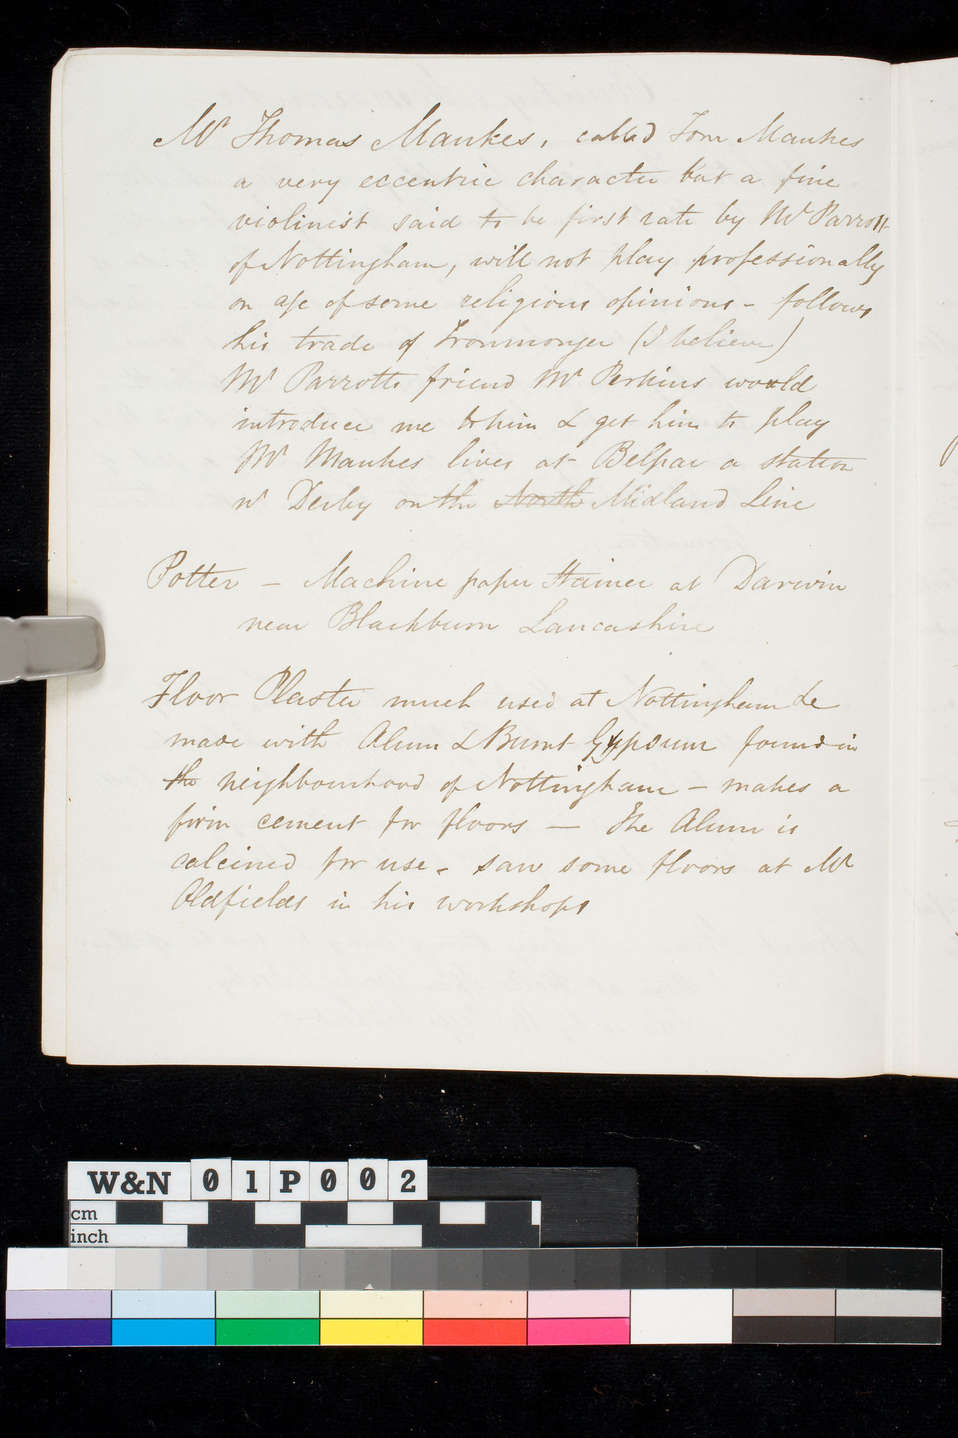 Mr Thomas Mawkes, called Tom Mawkes
a very eccentric character but a fine
violinist said to be first rate by Mr Parrott
of Nottingham, will not play professionally
on a/c of some religious opinions - follows
his trade of Ironmonger (I believe)
Mr Parrotts friend Mr Perkins would
introduce me to him & get him to play
Mr Mawkes lives at Belpar a station
nr Derby on the North Midland Line
Potter - Machine paper Stainer at Darwin
near Blackburn Lancashire
Floor Plaster much used at Nottingham &c
made with Alum & Burnt Gypsum found in
the neighbourhood of Nottingham - makes a
firm cement for floors - The Alum is
calcined for use - saw some floors at Mr
Oldfields in his workshops
W&N 01P002
cm
inch